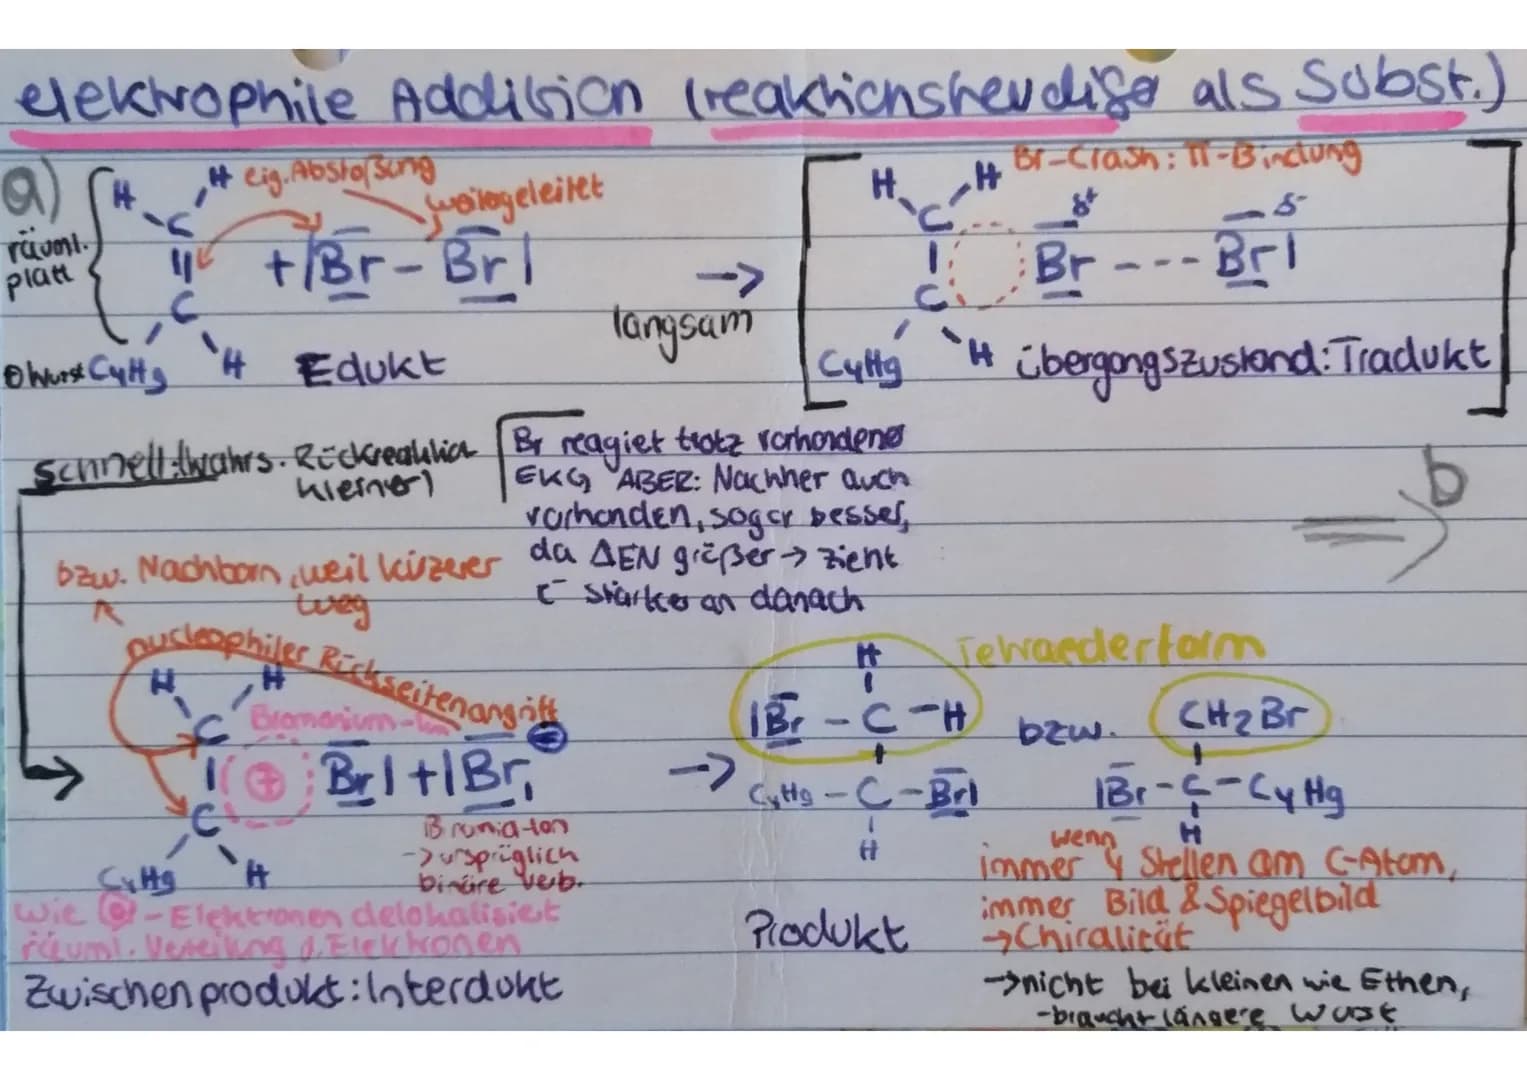 elektrophile Addition (reaktionsfreudiger als Subst.)
a)
räuml.
platt
H
H
eig. Abstoßung
weitergeleitet
C
||
C
+ |Br - Br|
Wurst C4H9
H
Edukt
->
langsam
H
H
Br-Crash: π-Bindung
C
|
C
δ+
δ-
Br --- Br|
C4H9
H
Übergangszustand: Tradukt
schnell: (wahrs. Rückreaktion
kleiner)
Br reagiert trotz vorhandener
EKG ABER: Nachher auch
vorhanden, sogar besser,
da ΔEN größer -> zieht
e- stärker an danach
=> b
bzw. Nachbarn, weil kürzerer
weg
nucleophiler Rückseitenangriff
H
H
C
|
C
Bromonium-Ion
+
Br| + |Br|
-
C4H9
H
Bromid-Ion
-> ursprüglich
binäre Verb.
wie -Elektronen delokalisiert
räuml. Verteilung d. Elektronen
Zwischenprodukt: Interdukt
->
Tetraederform
H
|Br - C - H
C4H9 - C - Br|
H
Produkt
bzw.
CH2Br
|Br - C - C4H9
H
wenn
immer 4 Stellen am C-Atom,
immer Bild & Spiegelbild
-> Chiralität
-> nicht bei kleinen wie Ethen,
- braucht längere Wurst